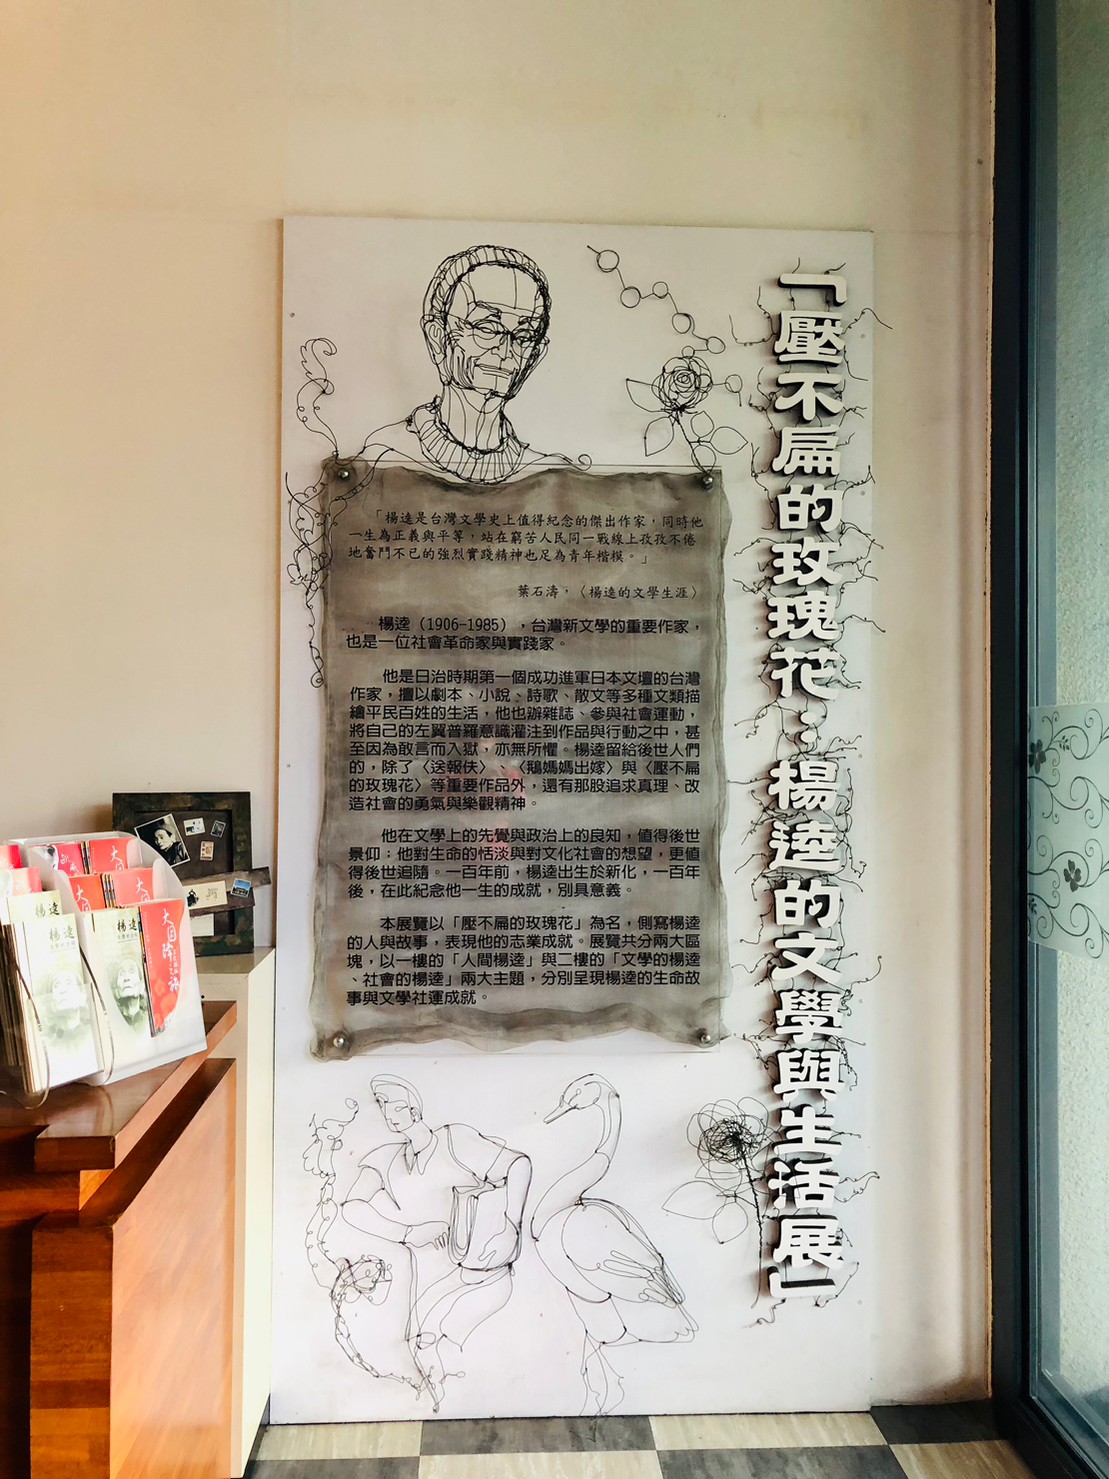 「壓不扁的玫瑰花：楊逵的文學與生活展」
「楊逵是台灣文學史上值得紀念的傑出作家，同時他
一生為正義與平等，站在窮苦人民同一戰線上孜孜不倦
地奮鬥不已的強烈實踐精神也足為青年楷模。」
葉石濤，〈楊逵的文學生涯〉
楊逵（1906-1985），台灣新文學的重要作家，
也是一位社會革命家與實踐家。
他是日治時期第一個成功進軍日本文壇的台灣
作家，擅以劇本、小說、詩歌、散文等多種文類描
繪平民百姓的生活，他也辦雜誌、參與社會運動，
將自己的左翼普羅意識灌注到作品與行動之中，甚
至因為敢言而入獄，亦無所懼。楊逵留給後世人們
的，除了〈送報伕〉、〈鵝媽媽出嫁〉與〈壓不扁
的玫瑰花〉等重要作品外，還有那股追求真理、改
造社會的勇氣與樂觀精神。
他在文學上的先覺與政治上的良知，值得後世
景仰；他對生命的恬淡與對文化社會的想望，更值
得後世追隨。一百年前，楊逵出生於新化，一百年
後，在此紀念他一生的成就，別具意義。
本展覽以「壓不扁的玫瑰花」為名，側寫楊逵
的人與故事，表現他的志業成就。展覽共分兩大區
塊，以一樓的「人間楊逵」與二樓的「文學的楊逵
、社會的楊逵」兩大主題，分別呈現楊逵的生命故
事與文學社運成就。
楊逵
楊逵
大目降